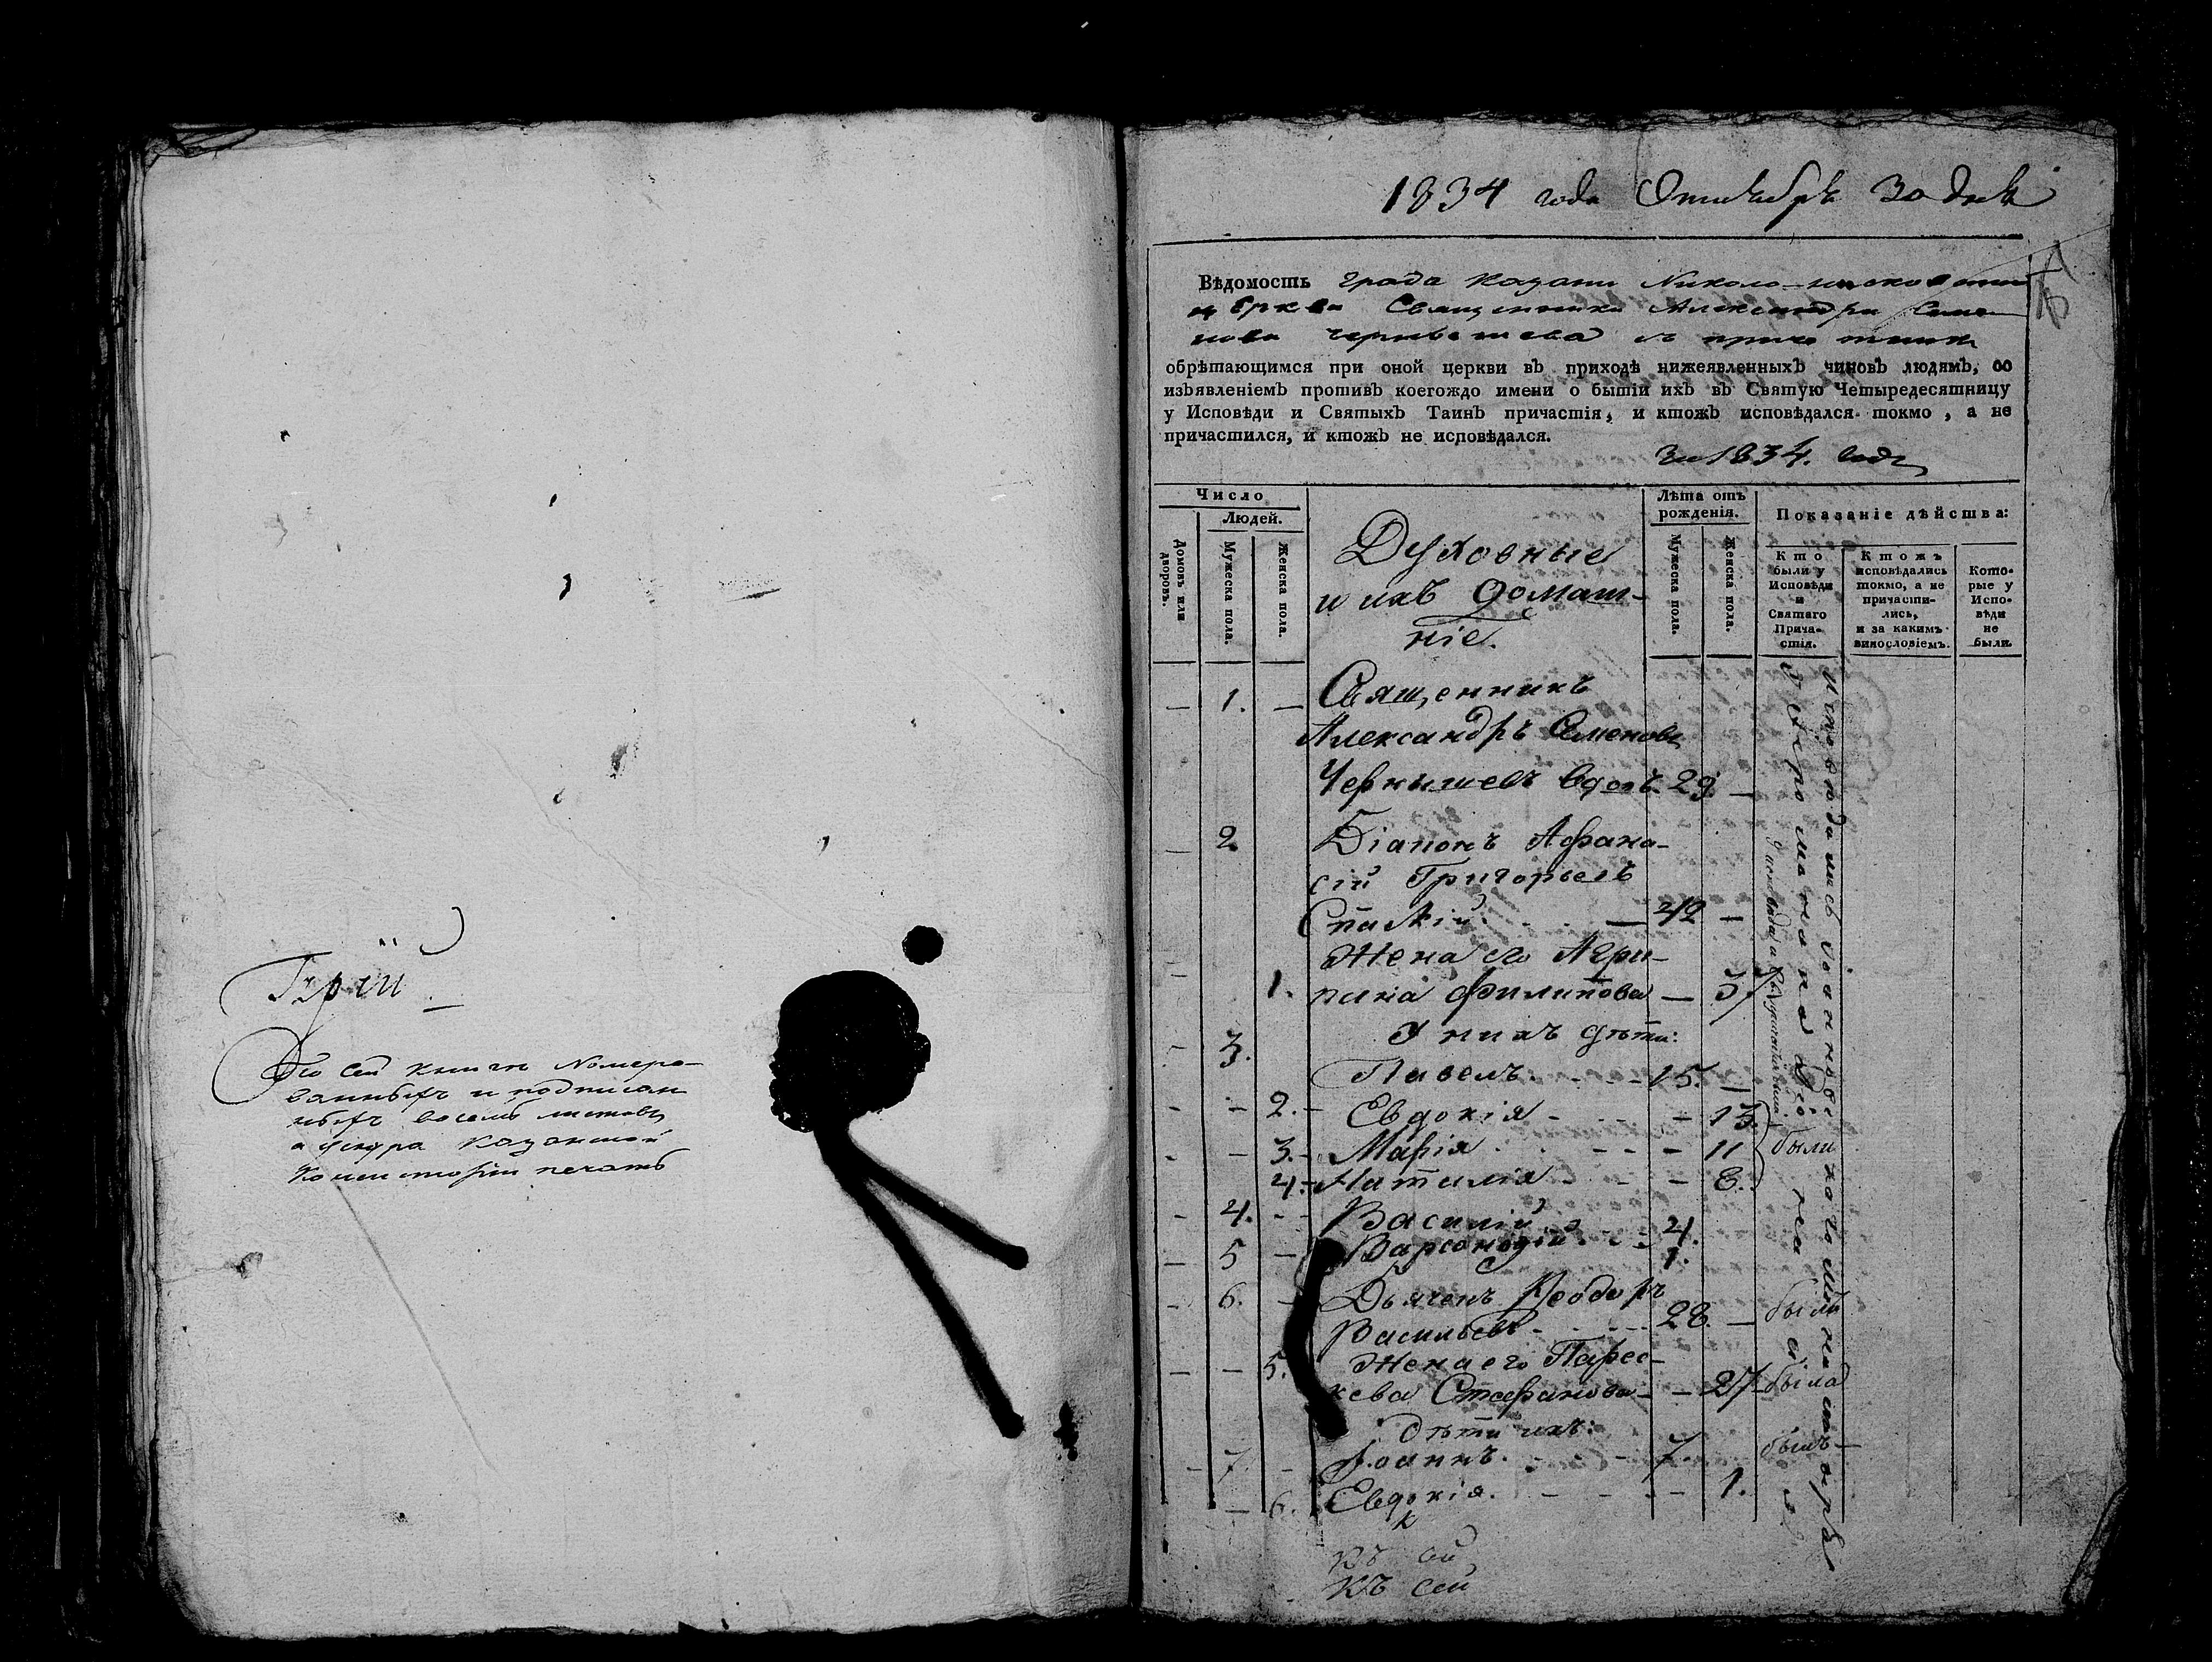 Въ сей книгѣ Номеро-
ванныхъ и подписан
ныхъ восемь листовъ
а у шнура Казанской
Консисторіи печать
1834 года Октября 30 дня
Вѣдомость града Казани Николо-
церкви Священника Александра Семе-
нова Чернышева съ причтомъ
обрѣтающимся при оной церкви въ приходѣ нижеявленныхъ чиновъ людямъ, со
изъявленіемъ противъ коегождо имени о бытіи ихъ въ Святую Четыредесятницу
у Исповѣди и Святыхъ Таинъ причастія, и ктожъ исповѣдался токмо, а не
причастился, и ктожъ не исповѣдался.
за 1834. годъ
Число
Людей.
Домовъ или дворовъ.
Мужеска пола.
Женска пола.
Духовные
и ихъ домаш-
ніе.
Лѣта отъ рожденія.
Мужеска пола.
Женска пола.
Показаніе дѣйства:
Кто были у Исповѣди и Святаго Прича-стія.
Ктожъ исповѣдались токмо, а не причасти-лись, и за какимъ винословіемъ.
Кото-рые у Испо-вѣди не были.
1. Священникъ
Александръ Семеновъ
Чернышевъ вдовъ 29.
2. Діаконъ Афана-
сій Григорьевъ
Спаскій 42
Жена его Агри-
1. пина Филипова 37
У нихъ дѣти:
3. Павелъ 15.
2. Евдокія 13.
3. Марія 11 были
4. Наталія 8.
4. Василій 4.
5 Варсонофій 1.
6. Дьячекъ Феодоръ
Васильевъ 28. былъ
5. Жена его Парас-
кева Стефанова 27 была
Дѣти ихъ:
7. Іоаннъ. 7. былъ
6. Евдокія. 1.
къ сей
къ сей